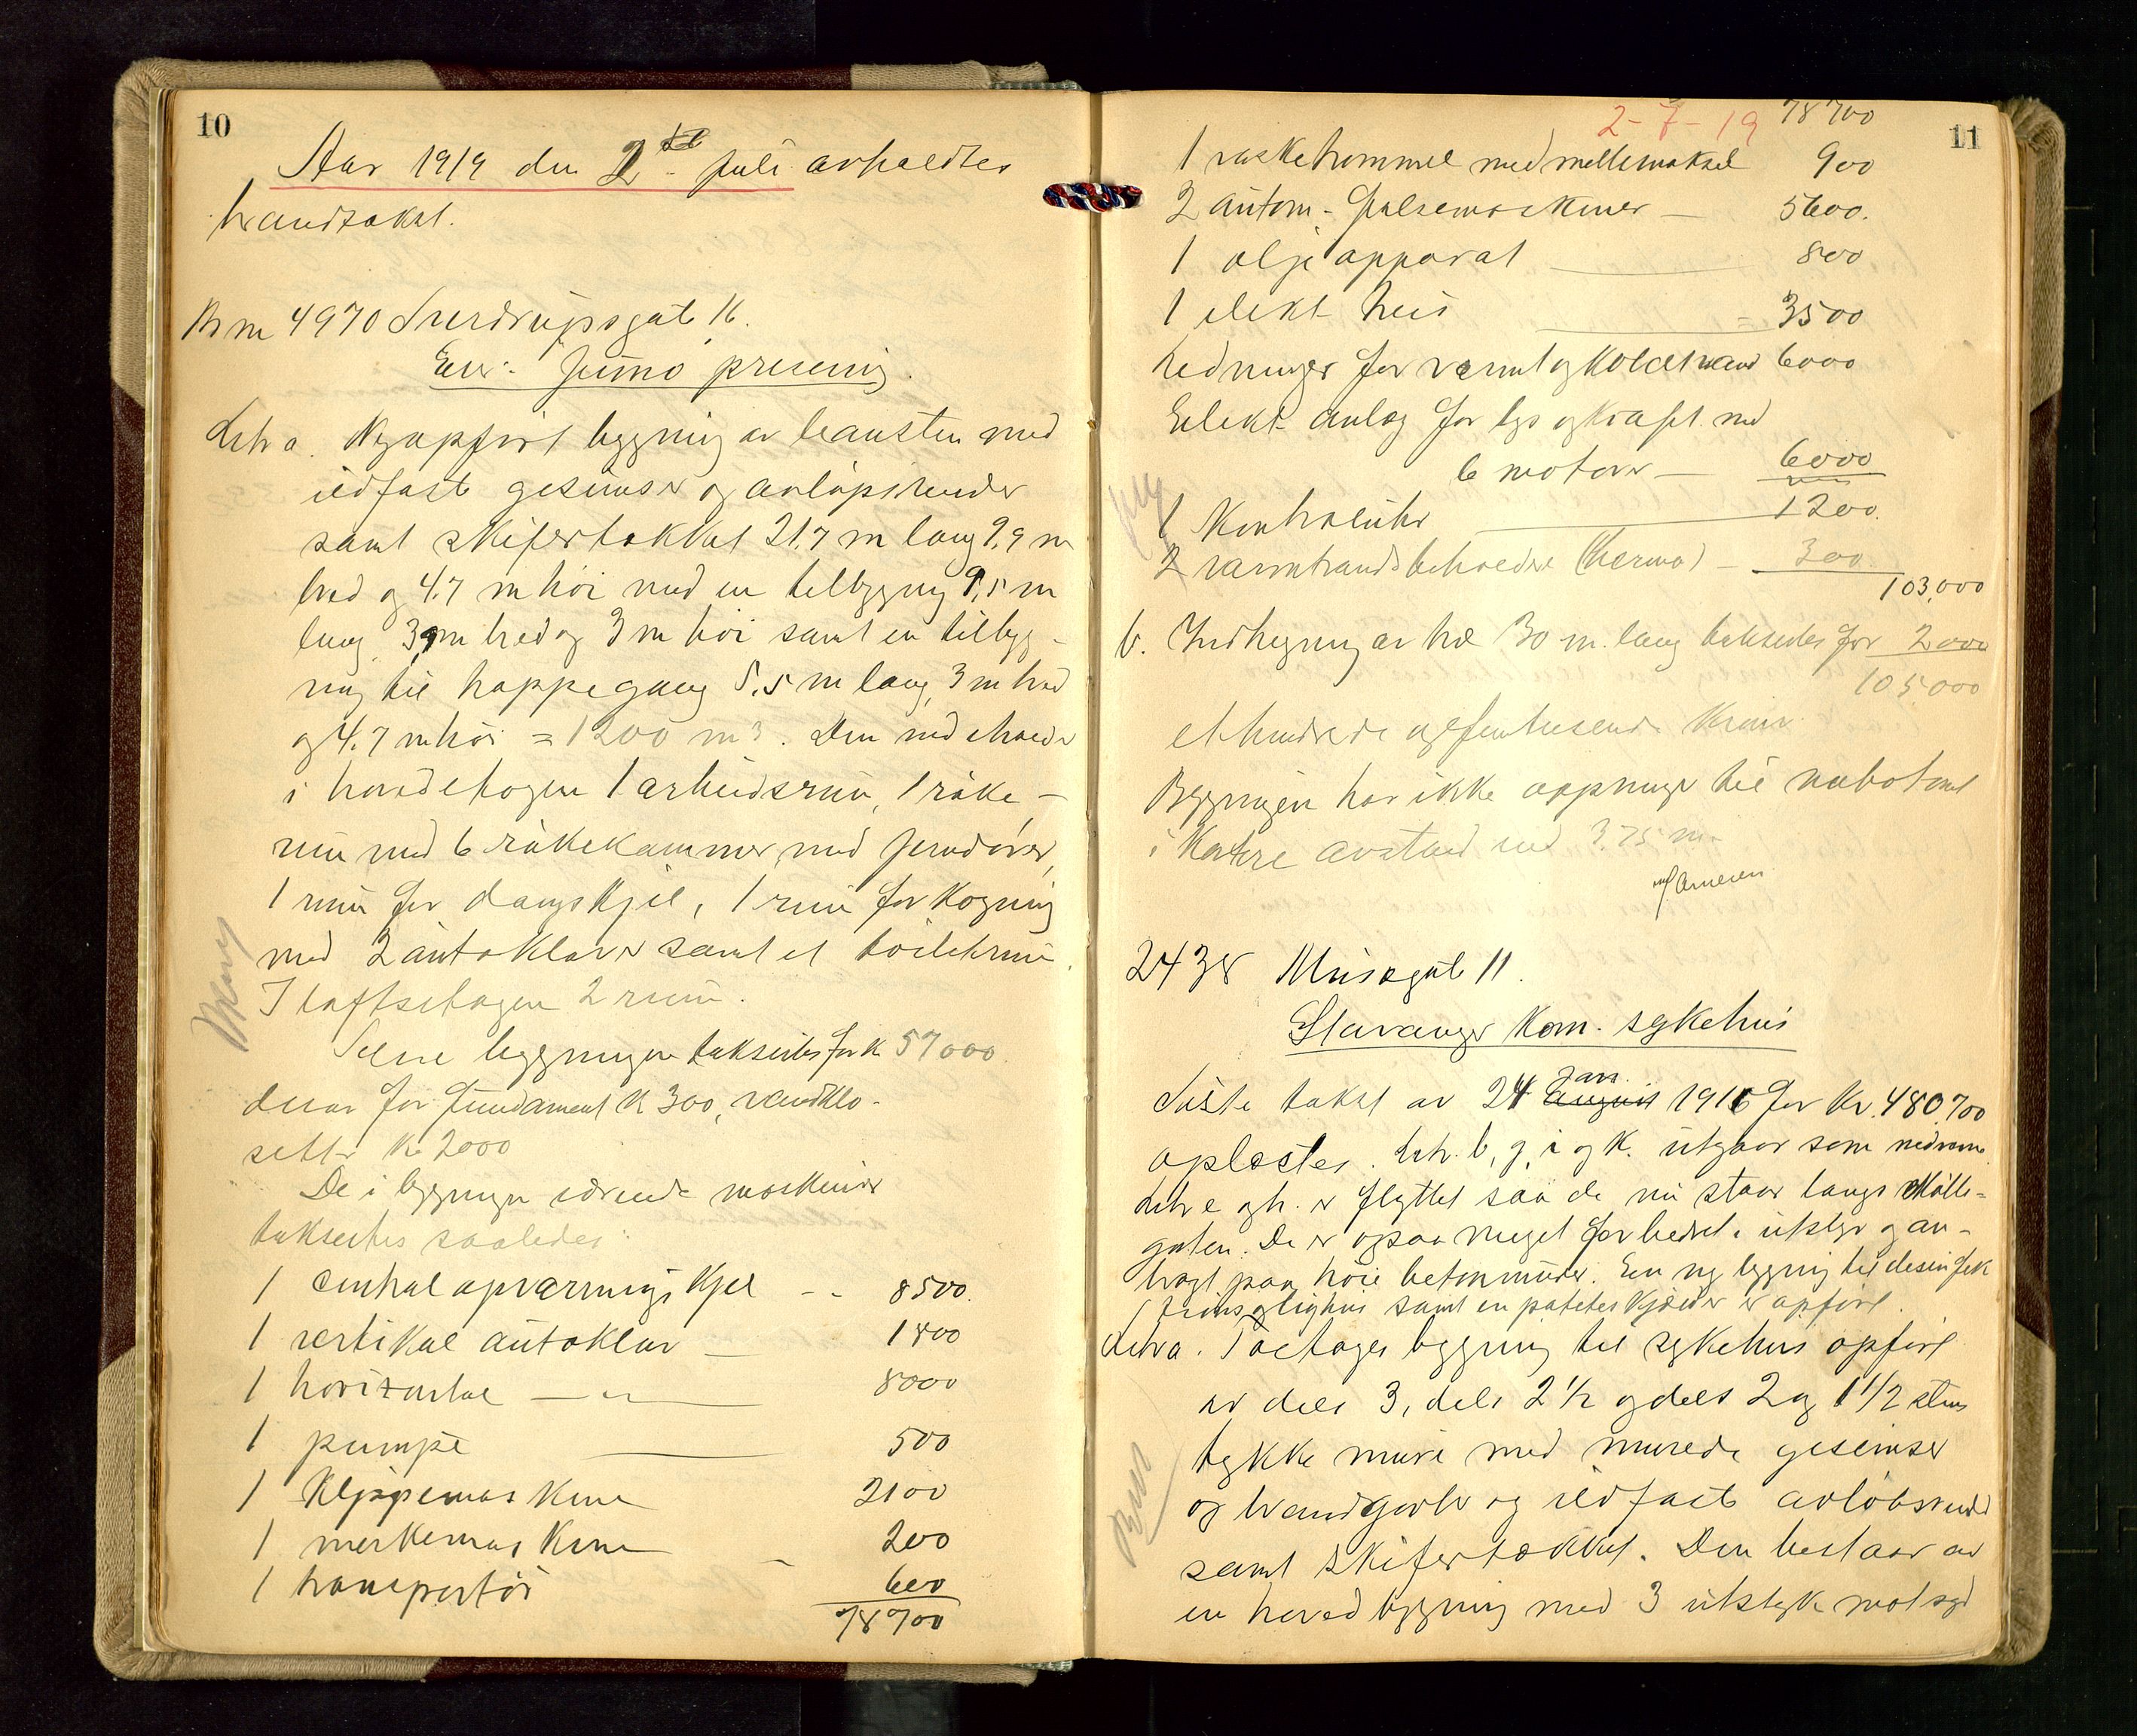 10
Aar 1919 den 2den juli avholdtes
brandtakst.
Br nr 4970 Sverdrupsgate 16.
Eier: Jumo preserving.
Litra a. Nyopført bygning av betonsten med
ildfaste gesimser og avløpsrender
samt skifertækket 21.7 m lang 9,9 m
bred og 4.7 m høi med en tilbygning 9,5 m
lang, 3,9 m bred og 3 m høi samt en tilbyg-
ning til trappegang 5.5 m lang, 3 m bred
og 4.7 m høi = 1200 m3. Den indeholder
i hovedetagen 1 arbeidsrum, 1 røke-
rum med 6 røkekammer med jerndører,
1 rum for dampkjel, 1 rum for kogning
med 2 autoklaver samt et toiletrum.
I loftsetagen 2 rum.
Selve bygningen taksertes for kr 57000
derav for fundament kr 300, vandklo-
setter kr 2000
De i bygningen værende maskiner
taksertes saaledes:
1 centralopvarmnings kjel - - 8500.
1 vertikal autoklav — 1800
1 horizontal —"— 8000
1 pumpe — 500
1 klippemaskine 2100
1 merkemaskine - 200
1 transportør 600
78700
2-7-19 78700
11
1 vasketrommel med mellemaksel 900
2 autom. falsemaskiner — 5600.
1 olje apparat — 800
1 elekt heis — 3500
Ledninger for varmt og koldt vand 6000
Elekt. anlæg for lys og kraft med
6 motorer — 6000
1 Kontrolur — 1200.
2 varmtvandsbeholdere (Kerma) — 300
103,000
b. Indhegning av træ 30 m. lang taksertes for 2000
105,000
et hundrede og femtusende kroner
Bygningen har ikke aapninger til nabotomt
i kortere avstand end 3.75 m.
2438 Musegate 11.
Stavanger Kom. sykehus
Siste takst av 24 august Jan. 1916 for kr. 480,700
oplæstes. Litr. b, g, i og k. utgaar som nedrevne
Litr e og h. er flyttet saa de nu staar langs Mølle-
gaten. De er ogsaa meget forbedret i utstyr og an-
bragt paa høie betonmurer. En ny bygning til desinfek
tions og lighus samt en potetes kjælder er opført.
Litra a. Toetages bygning til sykehus opført
av dels 3, dels 2½ og dels 2 og 1 1/2 stens
tykke mure med murede gesimser
og brandgavler og ildfaste avløbsrender
samt skifertækket. Den bestaar av
en hovedbygning med 3 utstyk mot syd